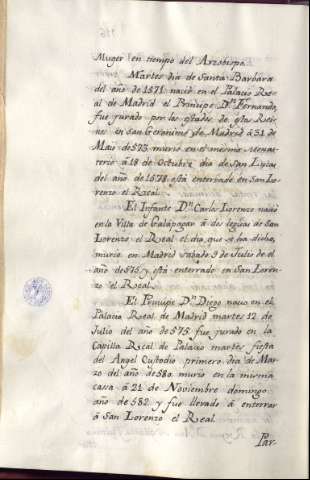 Muger en tiempo del Arzobispo.
Martes dia de Santa Barbara
del año de 1571 nació en el Palacio Re-
al de Madrid el Principe Dn. Fernando,
fue jurado por los estados de estos Rei-
nos en San Geronimo de Madrid á 31 de
Maio de 573 murio en el mismo Monas-
terio á 18 de Octubre dia de San Lucas
del año de 1578 está enterrado en San Lo-
renzo el Real.
El Infante Dn. Carlos Lorenzo nació
en la Villa de Galapagar á dos leguas de San
Lorenzo el Real el dia que se ha dicho,
murio en Madrid sabado 9 de Julio de el
año de 575 y está enterrado en San Loren-
zo el Real.
El Principe Dn. Diego nacio en el
Palacio Real de Madrid martes 12 de
Julio del año de 575 fue jurado en la
Capilla Real de Palacio martes fiesta
del Angel Custodio primero dia de Mar-
zo del año de 580 murio en la misma
casa á 21 de Noviembre domingo
año de 582 y fue llevado á enterrar
á San Lorenzo el Real.
Par-